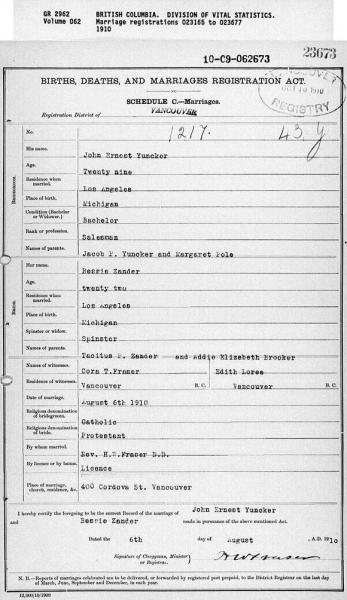 GR 2962 BRITISH COLUMBIA. DIVISION OF VITAL STATISTICS.
Volume 062 Marriage registrations 023165 to 023677
1910
10-C9-062673
23673
BIRTHS, DEATHS, AND MARRIAGES REGISTRATION ACT.
VANCOUVER
OCT 10 1910
REGISTRY
SCHEDULE C.—Marriages.
Registration District of VANCOUVER
No. 1217. 43 y
BRIDEGROOM.
His name. John Ernest Yuncker
Age. Twenty nine
Residence when married. Los Angeles
Place of birth. Michigan
Condition (Bachelor or Widower.) Bachelor
Rank or profession. Salesman
Names of parents. Jacob P. Yuncker and Margaret Pole
BRIDE.
Her name. Bessie Zander
Age. twenty two
Residence when married. Los Angeles
Place of birth. Michigan
Spinster or widow. Spinster
Names of parents. Tacitus P. Zander and Addie Elizabeth Brooker
Names of witnesses. Cora T. Fraser Edith Loree
Residence of witnesses. Vancouver B. C. Vancouver B. C.
Date of marriage. August 6th 1910
Religious denomination of bridegroom. Catholic
Religious denomination of bride. Protestant
By whom married. Rev. H.W. Fraser D.D.
By licence or by banns. Licence
Place of marriage, church, residence, &c. 400 Cordova St. Vancouver
I hereby certify the foregoing to be the correct Record of the marriage of John Ernest Yuncker
and Bessie Zander made in pursuance of the above mentioned Act.
Dated the 6th day of August , A.D. 1910
Signature of Clergyman, Minister or Registrar. H W Fraser
N. B.—Reports of marriages celebrated are to be delivered, or forwarded by registered post prepaid, to the District Registrar on the last day
of March, June, September and December, in each year.